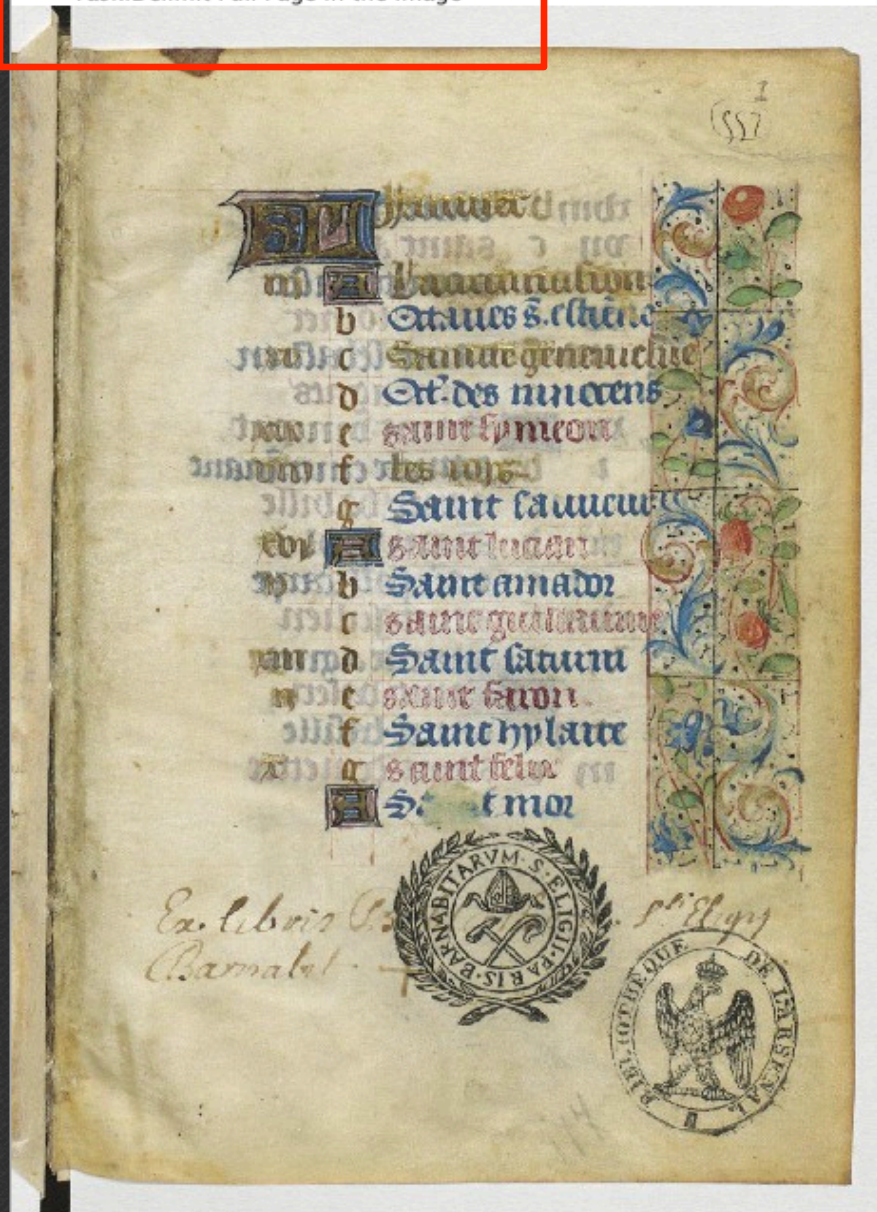 Page in the Image
1
557
KL Januier
A
b Octaues s. estiene
c Saincte geneuiefue
d Oct. des innocens
e saint symeon
f les roys
g Saint sauueur
xvi A saint lucian
b Saint amador
c saint guillaume
d Saint
ii e saint faron
f Saint hylaire
x g saint felix
A mor
Ex libris Sti Eligij
Barnabit
BARNABITARVM·S·ELIGII·PARIS·
BIBLIOTHEQUE DE L'ARSENAL